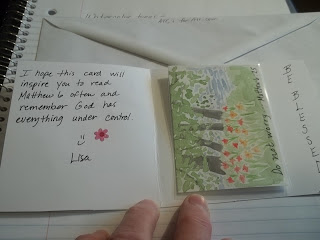 I hope this card will
inspire you to read
Matthew 6 often and
remember God has
everything under control.
Lisa
Do not worry
BE BLESSED